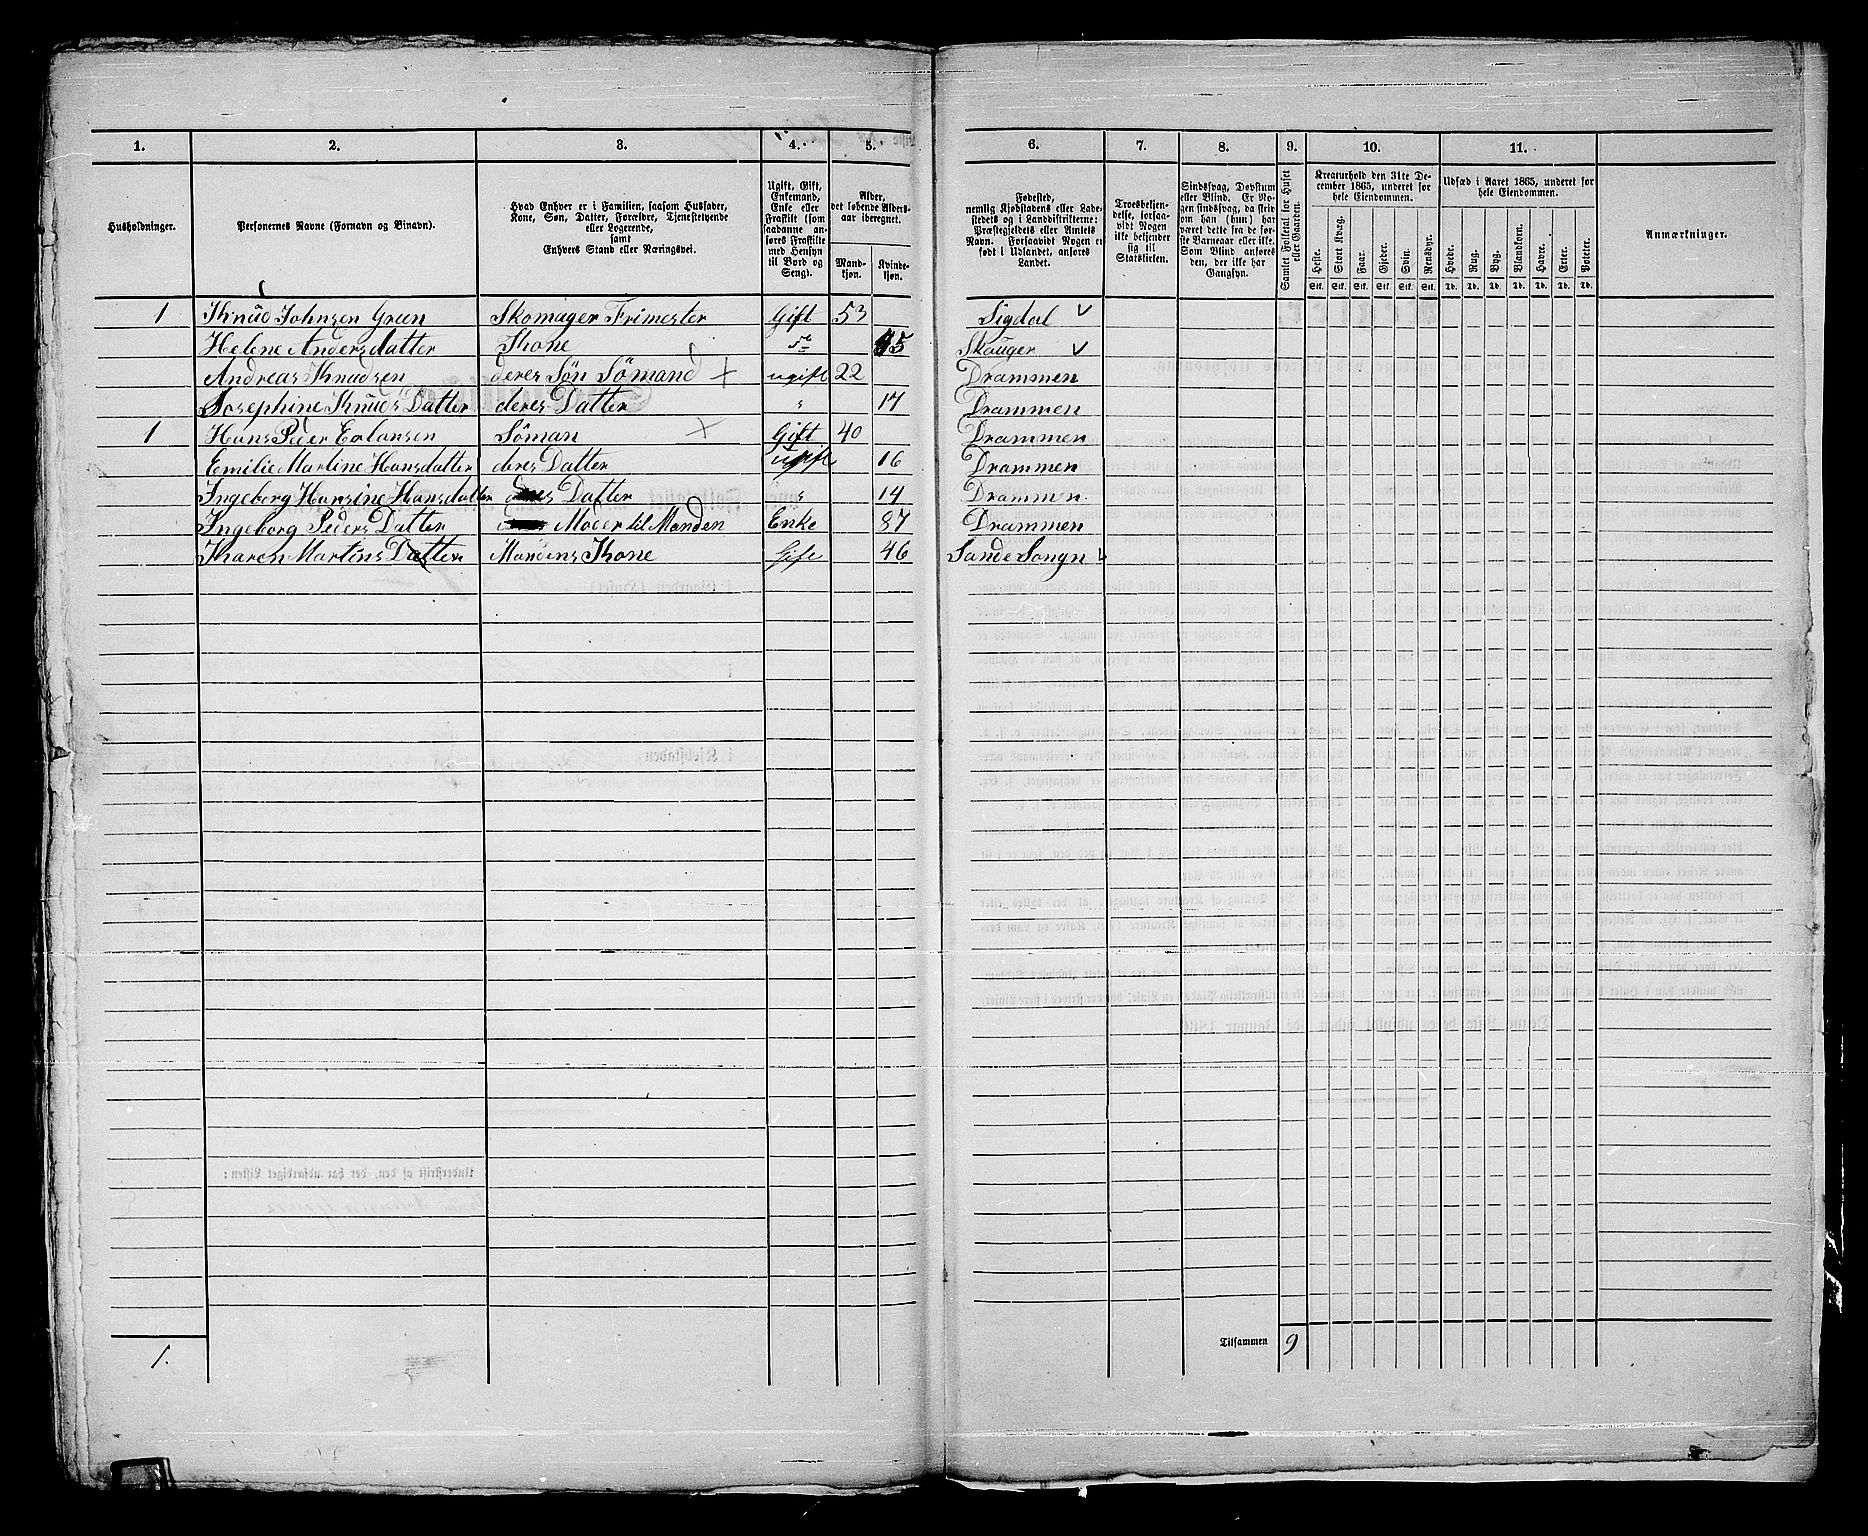 1. 2. 3. 4. 5. 6. 7. 8. 9. 10. 11.
Husholdninger.
Personernes Navne (Fornavn og Binavn).
Hvad Enhver er i Familien, saasom Husfader,
Kone, Søn, Datter, Forældre, Tjenestetyende
eller Logerende,
samt
Enhvers Stand eller Næringsvei.
Ugift, Gift,
Enkemand,
Enke eller
Fraskilt (som
saadanne an-
føres Fraskilte
med Hensyn
til Bord og
Seng).
Alder,
det løbende Alders-
aar iberegnet.
Mand-
kjøn.
Kvinde-
kjøn.
Fødested,
nemlig Kjøbstadens eller Lade-
stedets og i Landdistrikterne:
Præstegjeldets eller Amtets
Navn. Forsaavidt Nogen er
født i Udlandet, anføres
Landet.
Troesbekjen-
delse, forsaa-
vidt Nogen
ikke bekjender
sig til
Statskirken.
Sindssvag, Døvstum
eller Blind. Er No-
gen sindssvag, da skeiv
om han (hun) har
været dette fra de før-
ste Barneaar eller ikke.
Som Blind anføres
den, der ikke har
Gangsyn.
Samlet Folketal for Huset
eller Gaarden.
Kreaturhold den 31te De-
cember 1865, underet for
hele Eiendommen.
Heste. Stort Kvæg. Faar. Gjeder. Svin. Rensdyr.
Stk. Stk. Stk. Stk. Stk. Stk.
Udsæd i Aaret 1865, underet for
hele Eiendommen.
Hvede. Rug. Byg. Blandkorn. Havre. Erter. Poteter.
Td. Td. Td. Td. Td. Td. Td.
Anmærkninger.
1 Knud Johnsen Green Skomager Frimester Gift 53 Sigdal
Helene Andersdatter Kone Skouger
Andreas Knudsen deres Søn Sömand ugift 22 Drammen
Josephine Knuds Datter deres Datter " 17 Drammen
1 Hans Peder Erlansen Söman Gift 40 Drammen
Emilie Martine Hansdatter deres Datter ugift 16 Drammen
Ingeborg Hansine Hansdatter Datter " 14 Drammen
Ingeborg Peders Datter Moder til Manden Enke 87 Drammen
Karen Martins Datter Mandens Kone Gift 46 Sande Songn
Tilsammen 9
1.